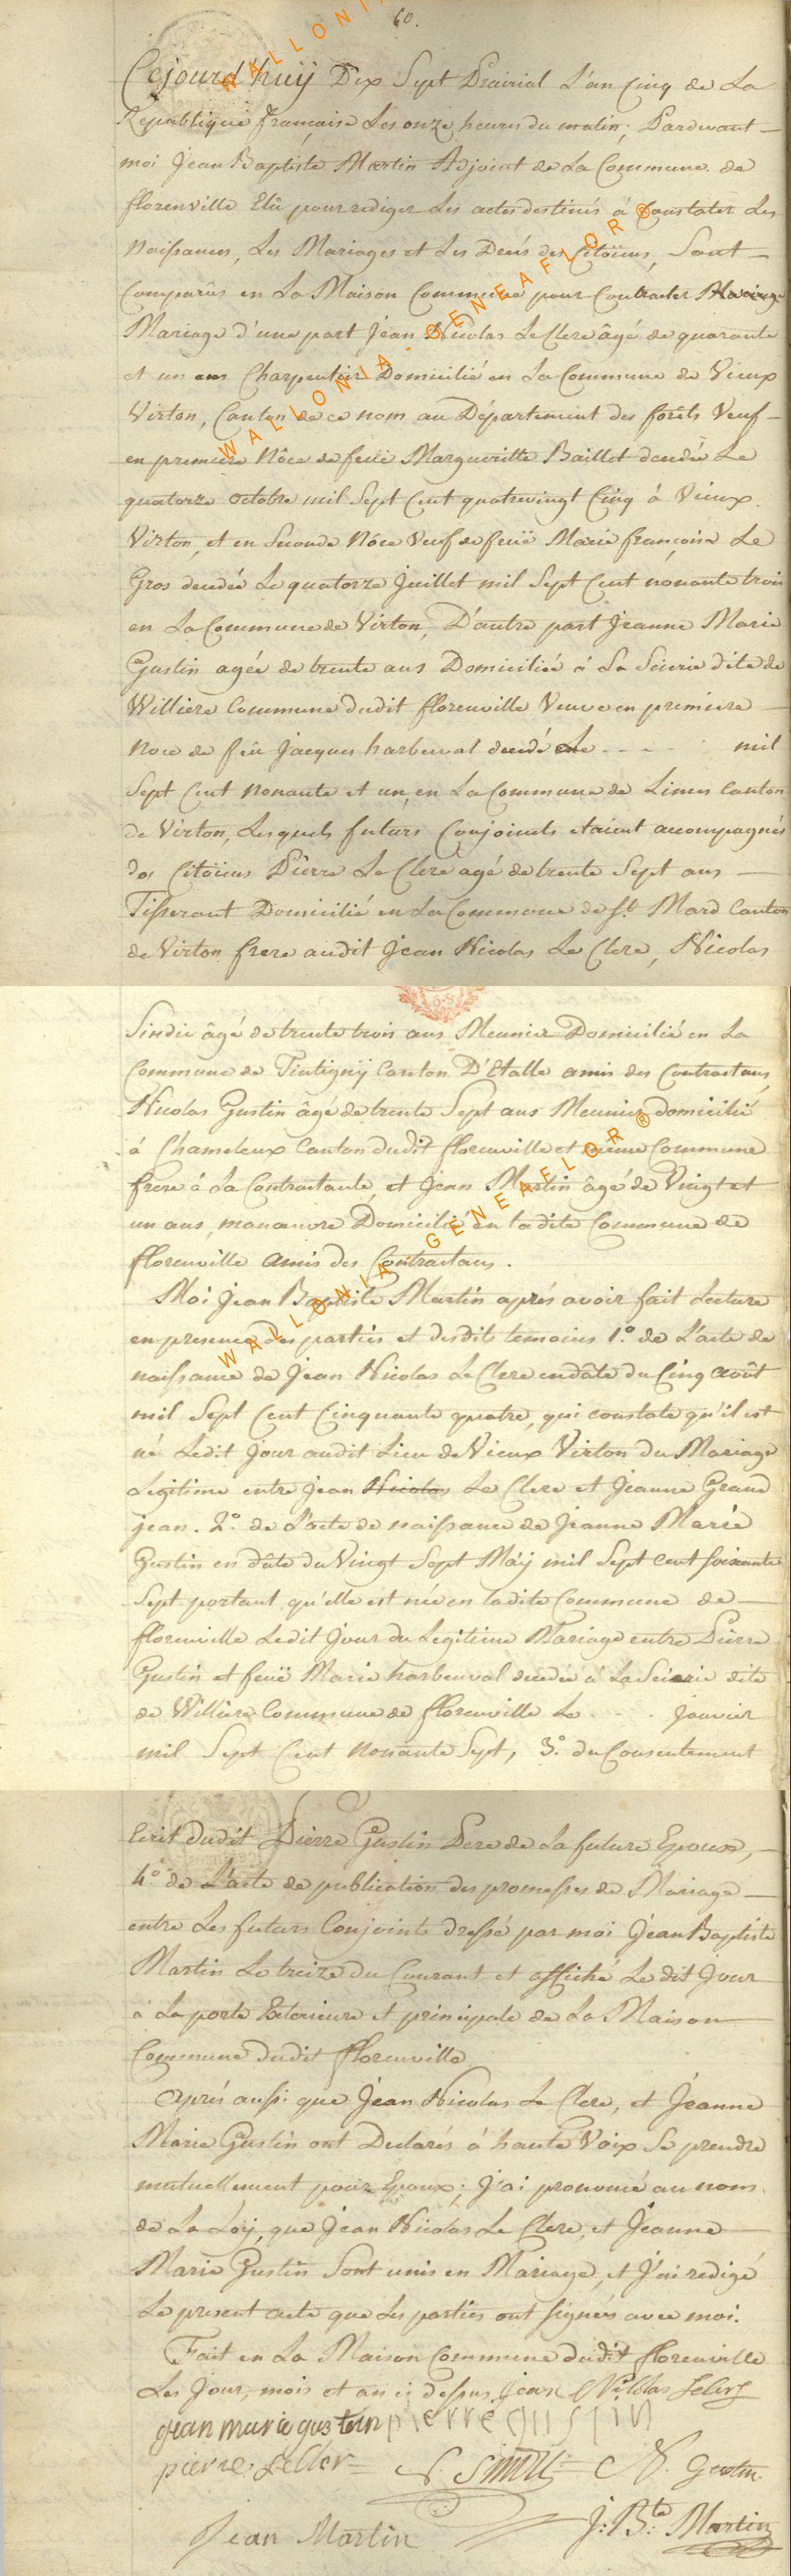 60.
Cejourd'huÿ Dix Sept Prairial L'an Cinq de La
Republique française Les onze heures du matin; Pardevant
moi Jean Baptiste Martin Adjoint de La Commune de
florenville Elû pour rediger Les actes destinés à Constater Les
Naissances, Les Mariages et Les Decés des Citöiens, Sont
Comparûs en La Maison Commune pour Contracter
Mariage d'une part Jean Nicolas Le Clere âgé de quarante
et un ans Charpentier Domicilié en La Commune de Vieux
Virton, Canton de ce nom au Département des forêts Veuf
en premiere Nôce de feüe Margueritte Baillet decedée Le
quatorze octobre mil Sept Cent quatrevingt Cinq à Vieux
Virton, et en Seconde Nôce Veuf de feüe Marie françoise Le
Gros decedée Le quatorze Juillet mil Sept Cent nonante trois
en La Commune de Virton, D'autre part Jeanne Marie
Gustin agée de trente ans Domiciliée à La Scierie dite de
Williere Commune dudit florenville Veuve en premiere
Noce de feû Jacques harbeuval decedé Le - - - - mil
Sept Cent Nonante et un, en La Commune de Limes Canton
de Virton, Lesquels futurs Conjoints etaient accompagnés
des Citöiens Pierre Le Clere agé de trente Sept ans
Tisserant Domicilié en La Commune de St. Mard Canton
de Virton frere audit Jean Nicolas Le Clere, Nicolas
Sindic âgé de trente trois ans Meunier Domicilié en La
Commune de Tintignÿ Canton D'Etalle amis des Contractans,
Nicolas Gustin âgé de trente Sept ans Meunier domicilié
à Chameleux Canton dudit florenville et même Commune
frere à La Contractante, et Jean Martin âgé de Vingt et
un ans, manœuvre Domicilié en ladite Commune de
florenville amis des Contractans.
Moi Jean Baptiste Martin après avoir fait Lecture
en presence des parties et desdits temoins 1.° de L'acte de
naissance de Jean Nicolas Le Clere en dâte du Cinq Août
mil Sept Cent Cinquante quatre, qui constate qu'il est
né Ledit Jour audit Lieu de Vieux Virton du Mariage
Legitime entre Jean Nicolas Le Clere et Jeanne Grand
jean. 2.° de L'acte de naissance de Jeanne Marie
Gustin en dâte du Vingt Sept Maÿ mil Sept Cent soixante
Sept portant qu'elle est née en ladite Commune de
florenville Ledit Jour du Legitime Mariage entre Pierre
Gustin et feüe Marie harbeuval decedée à La Scierie dite
de Williere Commune de florenville Le - - - Janvier
mil Sept Cent Nonante Sept, 3.° du Consentement
Ecrit dudit Pierre Gustin Pere de La future Epouse,
4.° de L'acte de publication des promesses de Mariage
entre Les futurs Conjoints dressé par moi Jean Baptiste
Martin Le treize du Courant et affiché Le dit Jour
à La porte Exterieure et principale de La Maison
Commune dudit florenville
Après aussi que Jean Nicolas Le Clere, et Jeanne
Marie Gustin ont Declarés à haute Voix Se prendre
mutuellement pour Epoux; J'ai prononcé au nom
de La Loÿ, que Jean Nicolas Le Clere, et Jeanne
Marie Gustin Sont unis en Mariage, et J'ai redigé
Le present acte que Les parties ont signées avec moi.
Fait en La Maison Commune dudit florenville
Les Jour, mois et an ci dessus. Jean Nicolas
Jean marie gustin pierre gustin
pierre N. N. Gustin
Jean Martin J: B.te Martin
WALLONIA - GENEAFLOR ®
WALLONIA GENEAFLOR ®